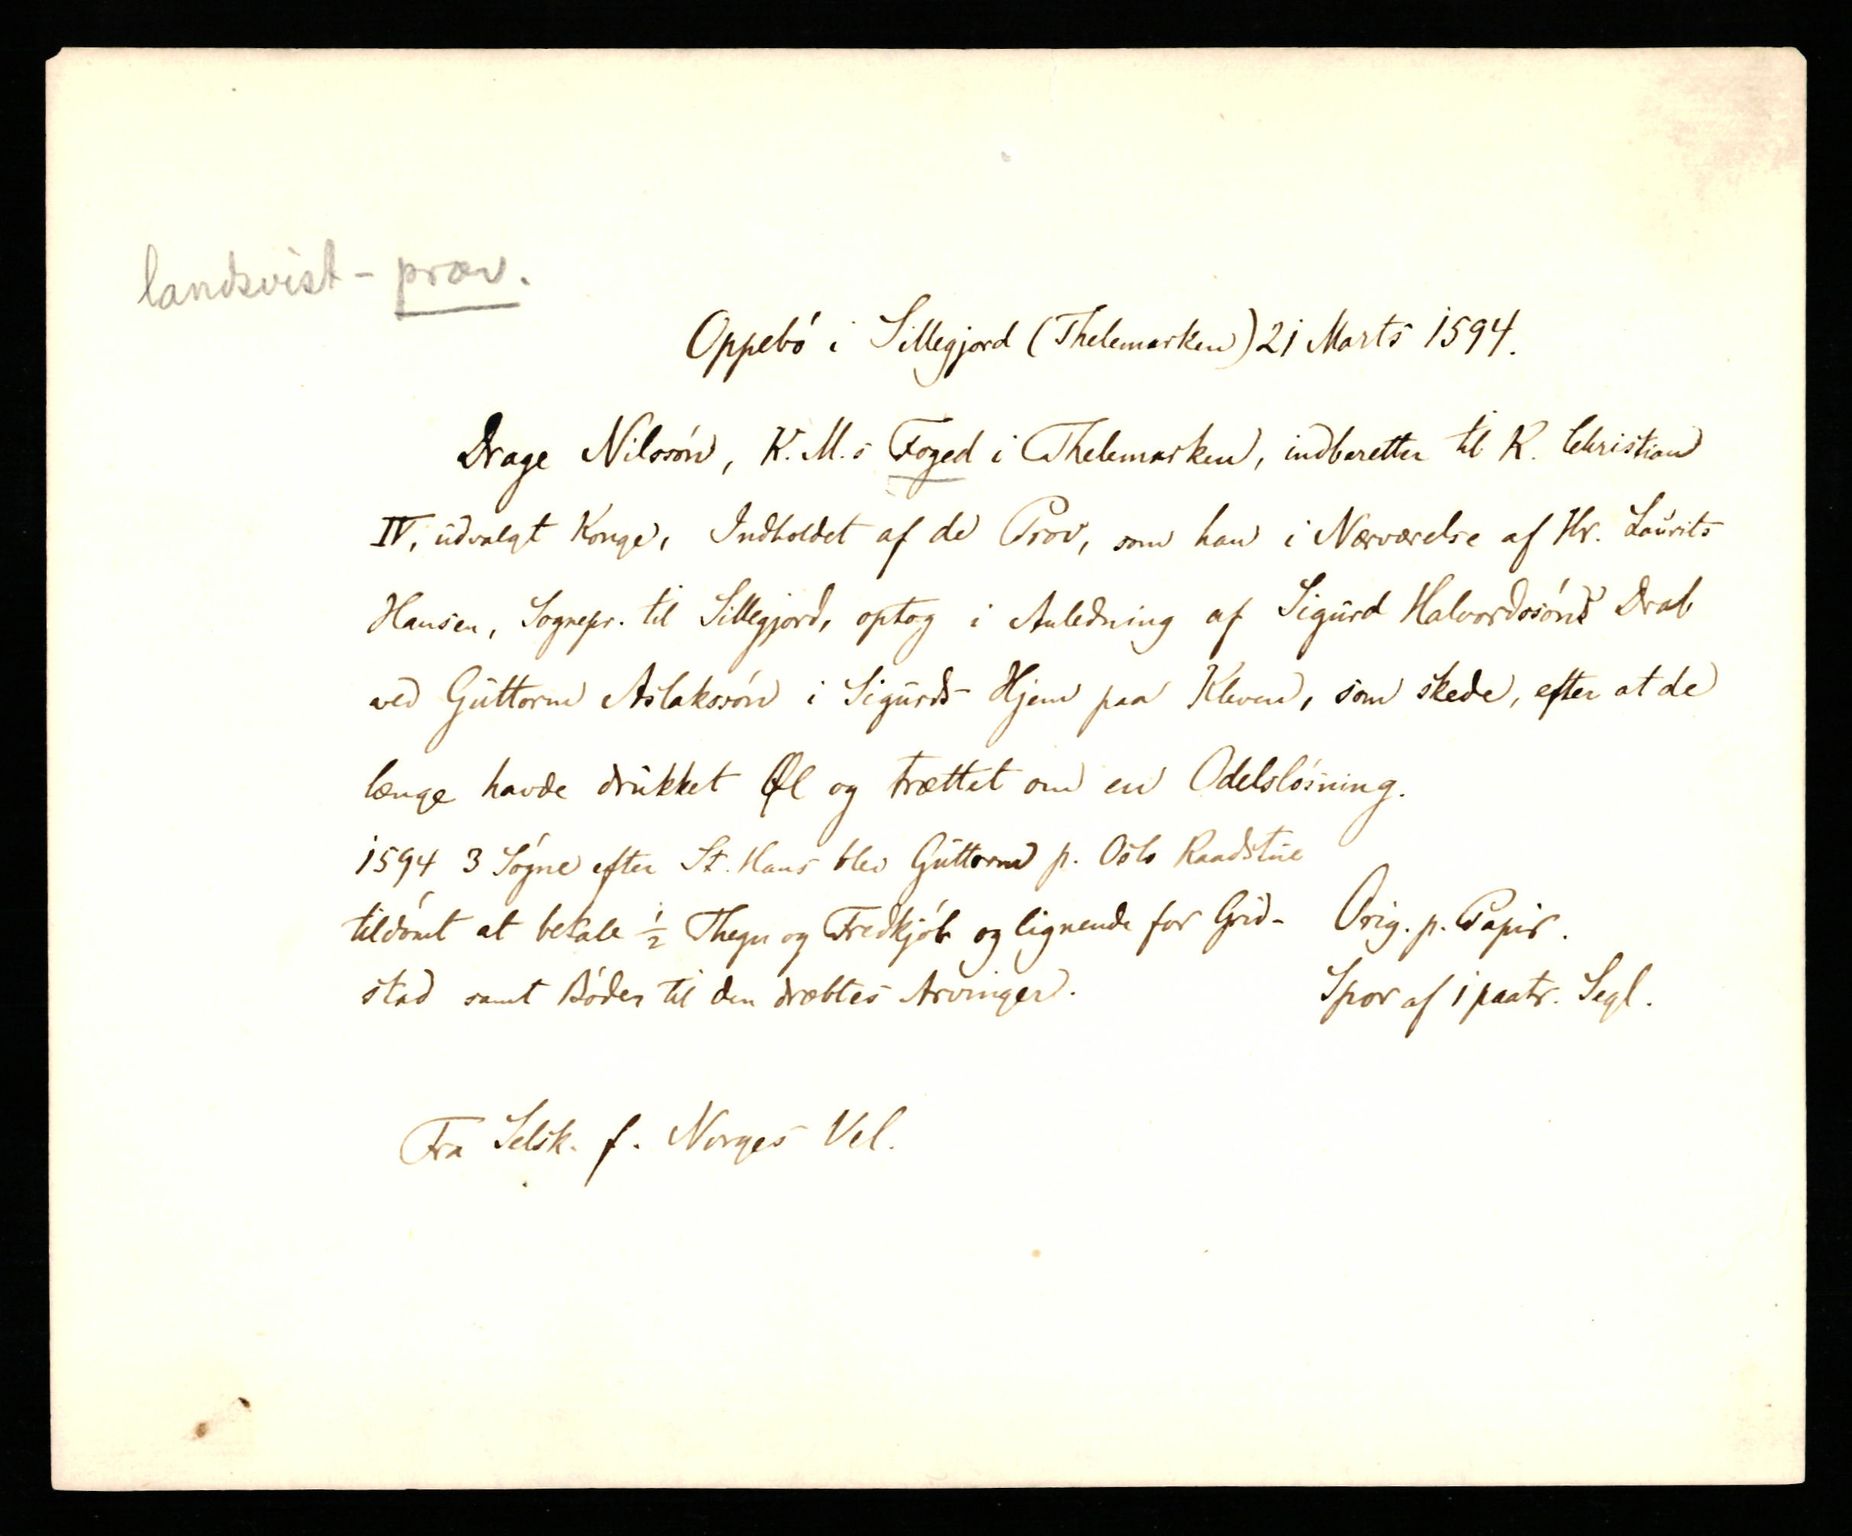 landsvist - prov.
Oppebó i Sillegjord (Thelemarken) 21 Marts 1594.
Drage Nilssón, K. M.s Foged i Thelemarken, indberetter til K. Christian
IV, udvalgt Konge, Indholdet af de Prov, som han i Nærværelse af Hr. Laurits
Hansen, Sognepr. til Sillegjord, optog i Anledning af Sigurd Halvordssóns Drab
ved Guttorm Aslakssón i Sigurds Hjem paa Kleven, som skede, efter at de
længe havde drukket Øl og trættet om en Odelslósning.
1594 3 Sógne efter St. Hans blev Guttorm p. Oslo Raadstue
tildómt at betale ½ Thegn og Fredkjób og lignende for Grid-
stad samt Bóder til den dræbtes Arvinger.
Orig. p. Papir.
Spor af 1 paatr. Segl.
Fra Selsk. f. Norges Vel.